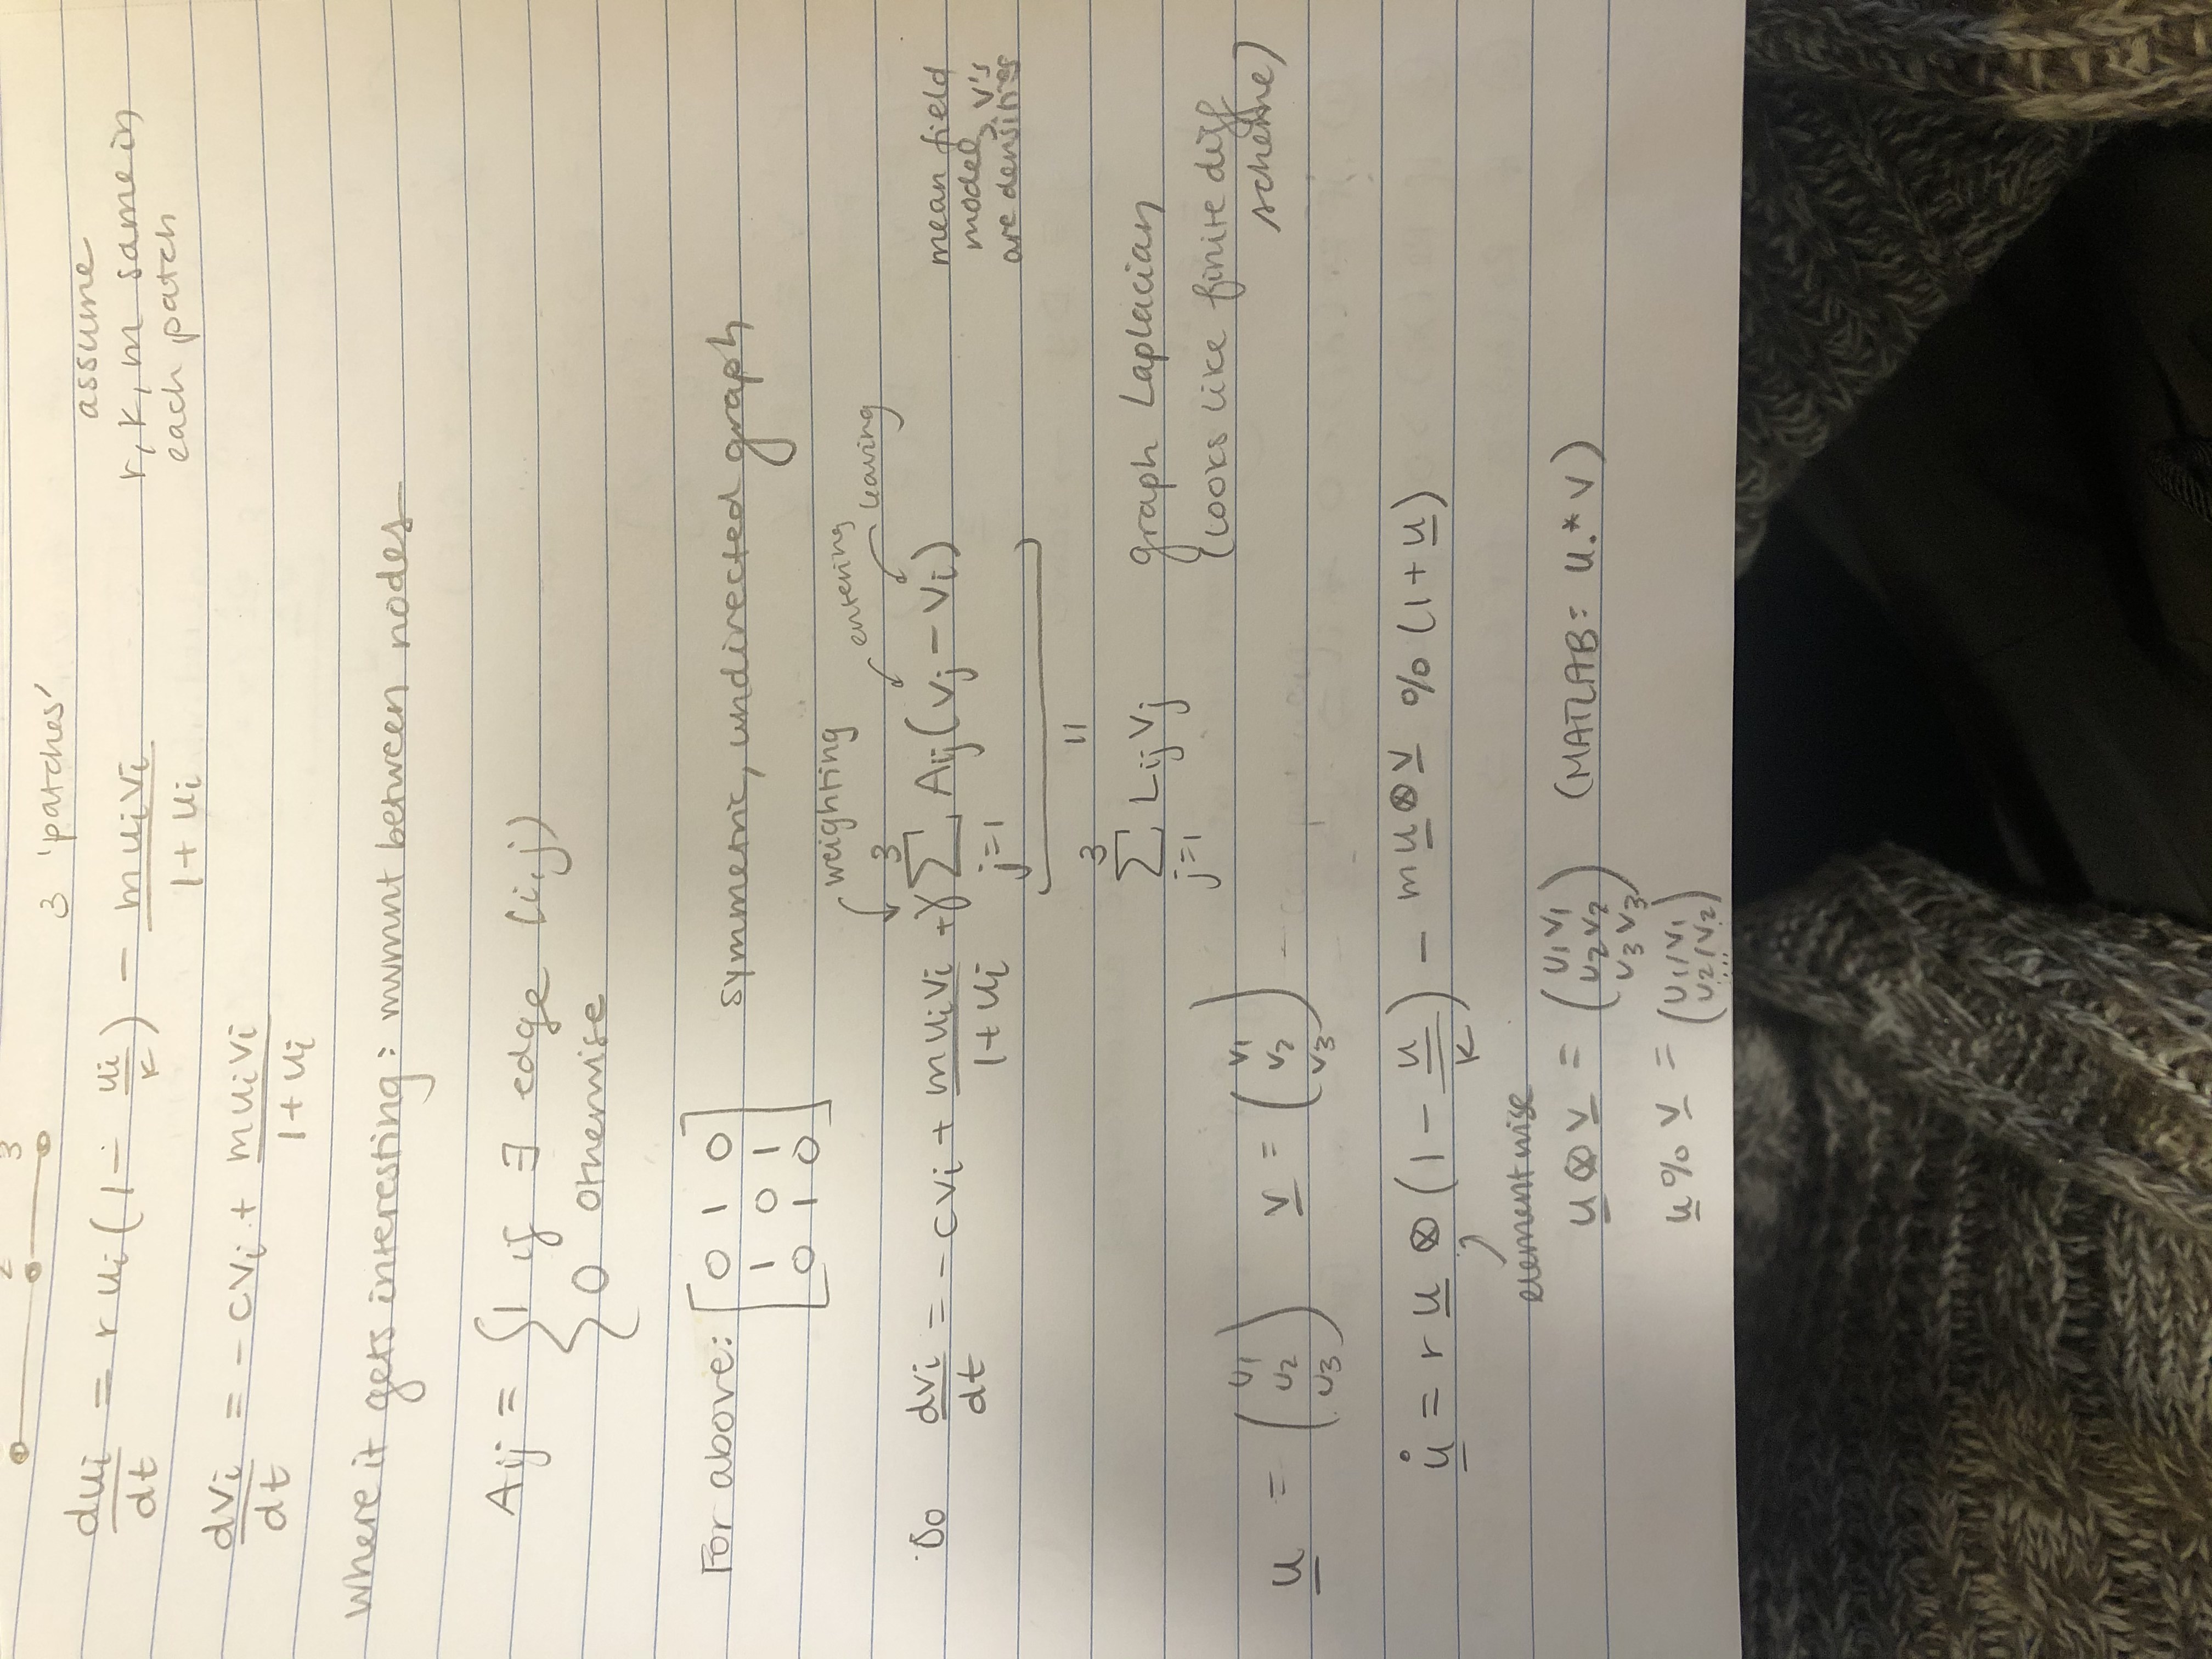 2 3
3 'patches'
dui/dt = r ui (1 - ui/K) - m ui vi / 1 + ui
assume
r, K, m same in
each patch
dvi/dt = - cvi + m ui vi / 1 + ui
Where it gets interesting: mvmnt between nodes
Aij = { 1 if ∃ edge (i,j)
0 otherwise
For above: [ 0 1 0
1 0 1
0 1 0 ]
symmetric, undirected graph
weighting
entering
leaving
So dvi/dt = - cvi + m ui vi / 1 + ui + γ 3 Σ j=1 Aij (vj - vi)
mean field
model, v's
are densities
=
3 Σ j=1 Lij vj
graph Laplacian
(looks like finite diff
scheme)
u = ( u1 u2 u3 ) v = ( v1 v2 v3 )
u̇ = r u ⊗ (1 - u/K) - m u ⊗ v % (1 + u)
elementwise
u ⊗ v = ( u1 v1 u2 v2 u3 v3 ) (MATLAB: u.* v)
u % v = ( u1/v1 u2/v2 ... )